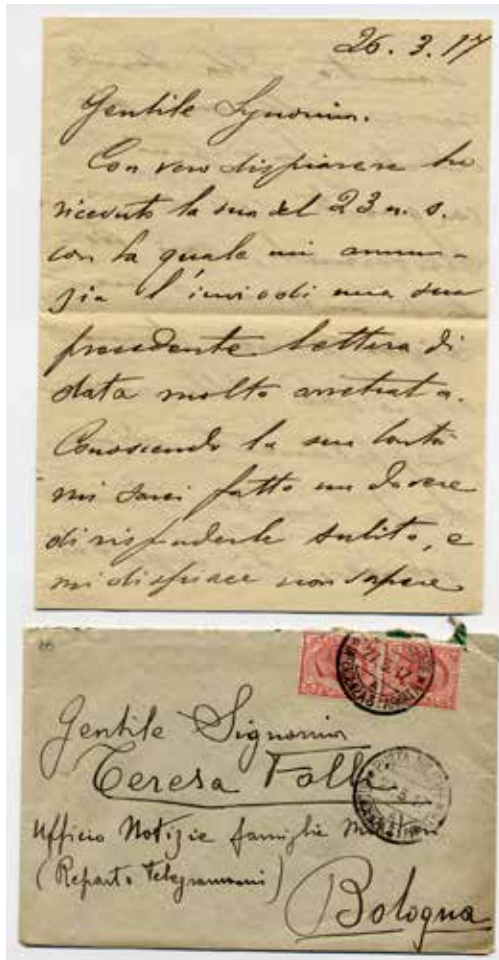 26. 3. 17
Gentile Signorina.
Con vero dispiacere ho
ricevuto la sua del 23 u. s.
con la quale mi annun-
zia l'invio di una sua
precedente lettera di
data molto arretrata.
Conoscendo la sua bontà
mi sarei fatto un dovere
di risponderle subito, e
mi dispiace non sapere
Gentile Signorina
Teresa Folli
Ufficio Notizie famiglie
(Reparto Telegrammi)
Bologna